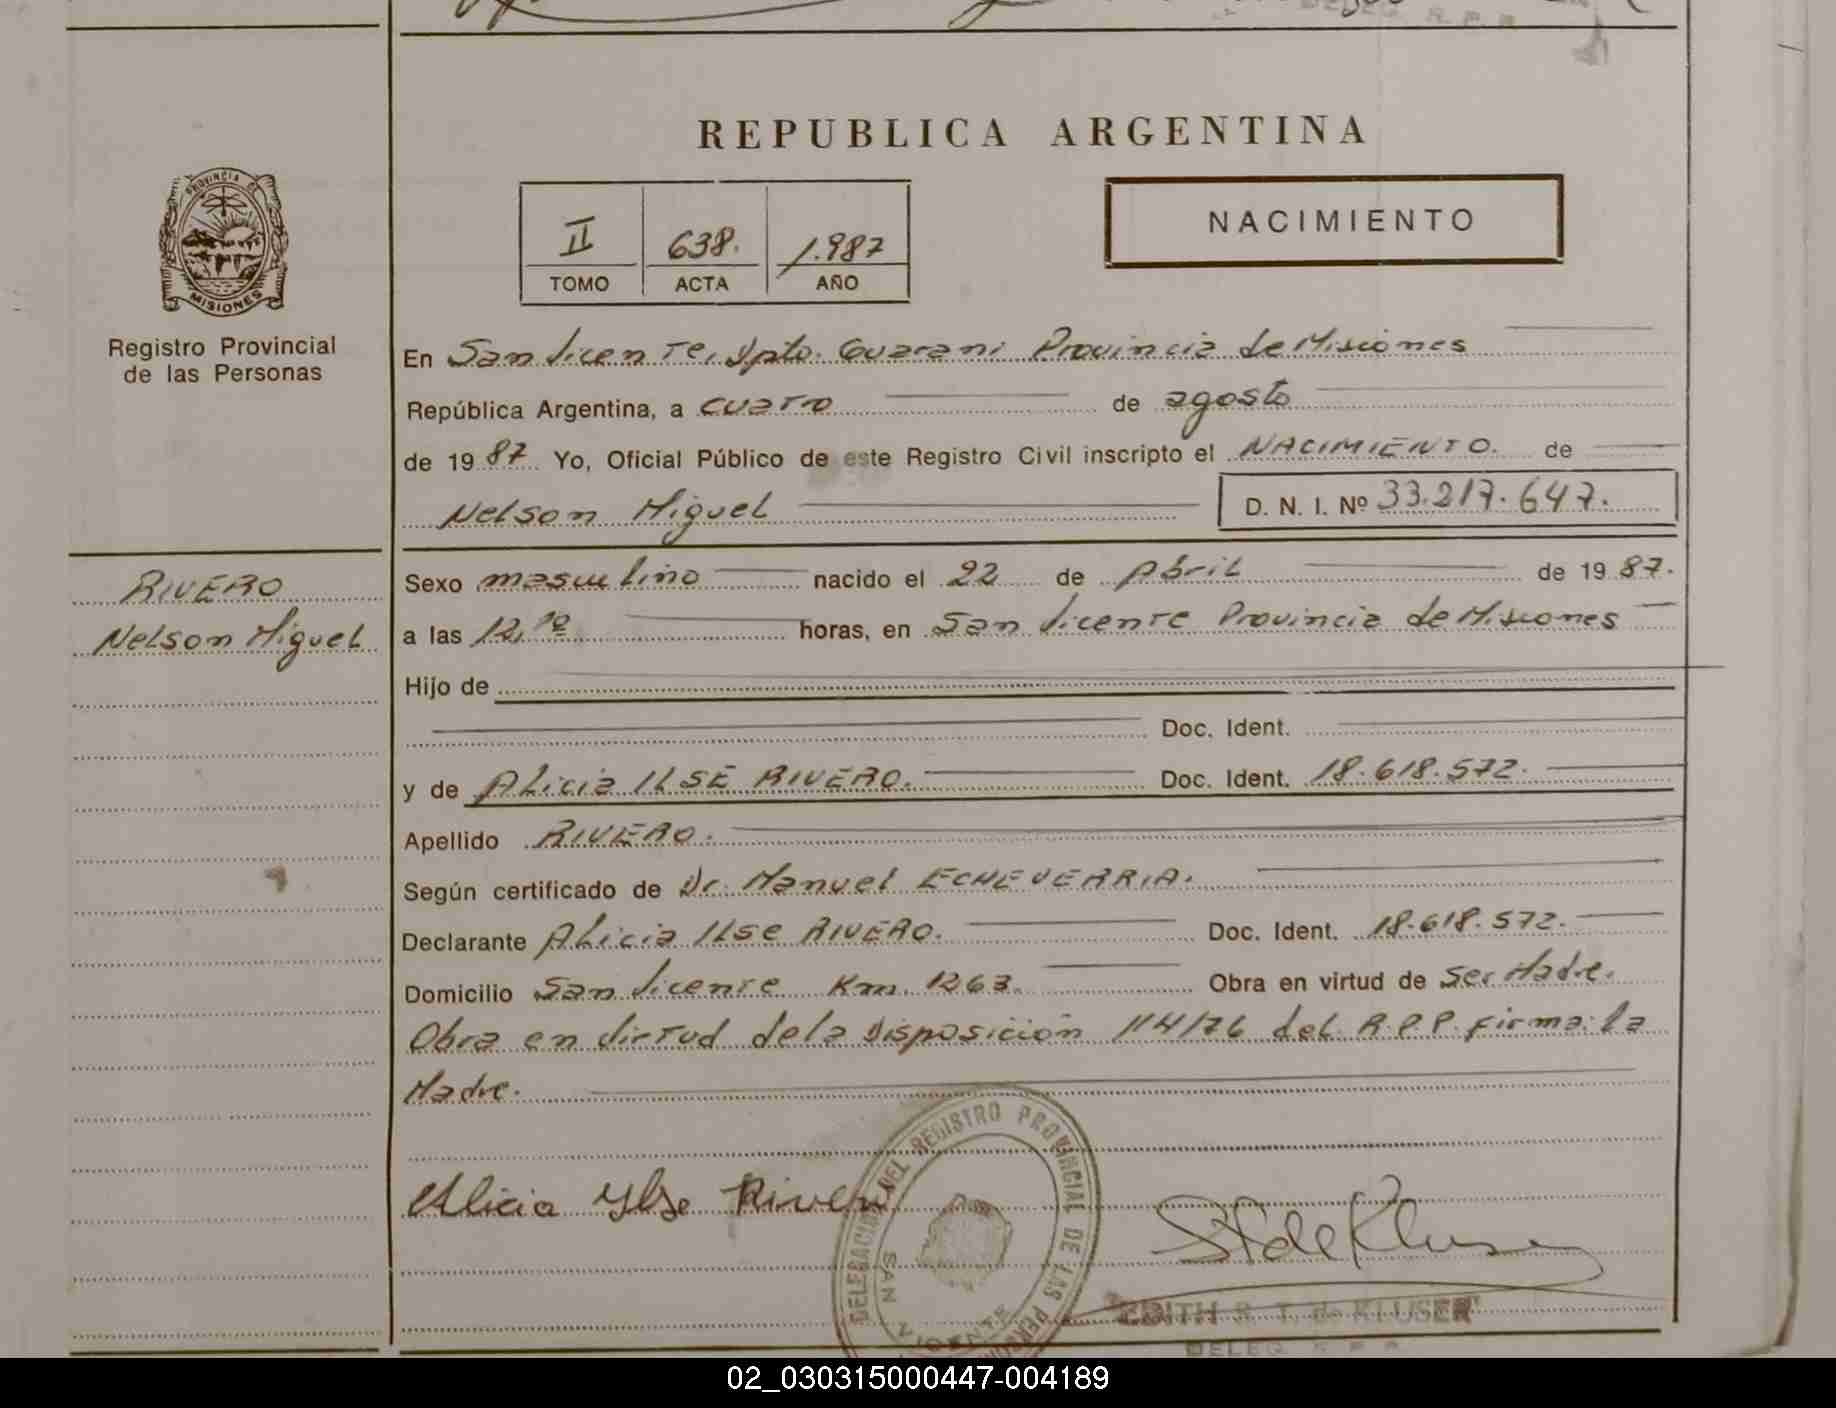 REPUBLICA ARGENTINA
PROVINCIA DE
MISIONES
Registro Provincial
de las Personas
II 638. 1.987
TOMO ACTA AÑO
NACIMIENTO
En San Vicente, Dpto. Guarani Provincia de Misiones
República Argentina, a cuatro de agosto
de 1987 Yo, Oficial Público de este Registro Civil inscripto el NACIMIENTO. de
Nelson Miguel D. N. I. Nº 33.217.647.
RIVERO
Nelson Miguel
Sexo masculino nacido el 22 de Abril de 1987.
a las 12,10 horas, en San Vicente Provincia de Misiones
Hijo de
Doc. Ident.
y de Alicia ILSE RIVERO. Doc. Ident. 18.618.572.
Apellido RIVERO.
Según certificado de Dr. Manuel ECHEVERRIA.
Declarante Alicia Ilse RIVERO. Doc. Ident. 18.618.572.
Domicilio San Vicente Km. 1263. Obra en virtud de ser Madre.
Obra en virtud de la Disposición 114/76 del R.P.P. firma: la
Madre.
Alicia Ylse Rivero
DELEGACION DEL REGISTRO PROVINCIAL DE LAS PERSONAS
SAN VICENTE
S T de Kluser
EDITH S. T. de KLUSER
DELEG. R. P. P.
02_030315000447-004189